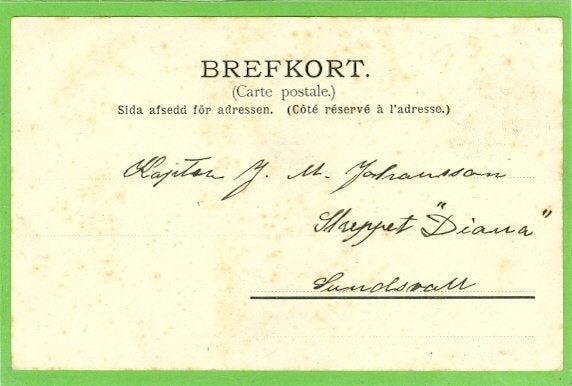 BREFKORT.
(Carte postale.)
Sida afsedd för adressen. (Côté réservé à l'adresse.)
Kapten J. M. Johansson
Skeppet "Diana"
Sundsvall